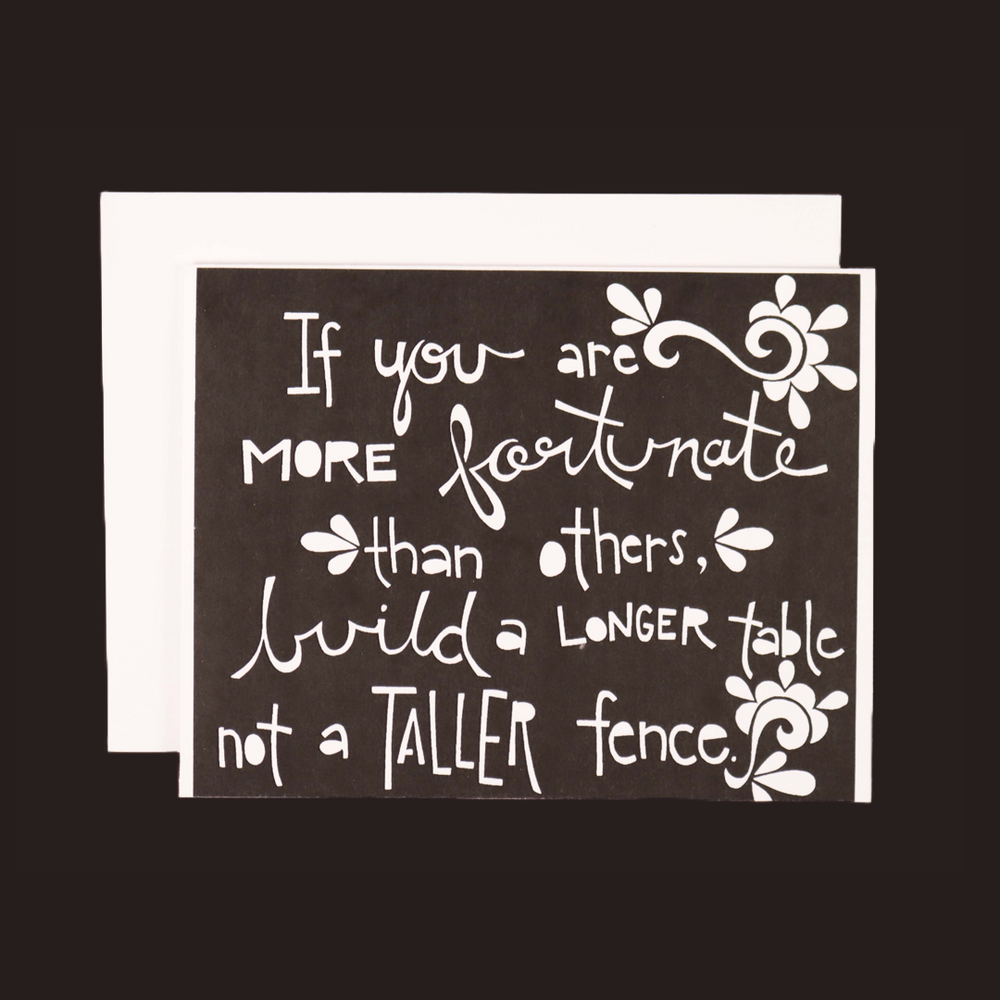 If you are
MORE fortunate
than others,
build a LONGER table
not a TALLER fence.